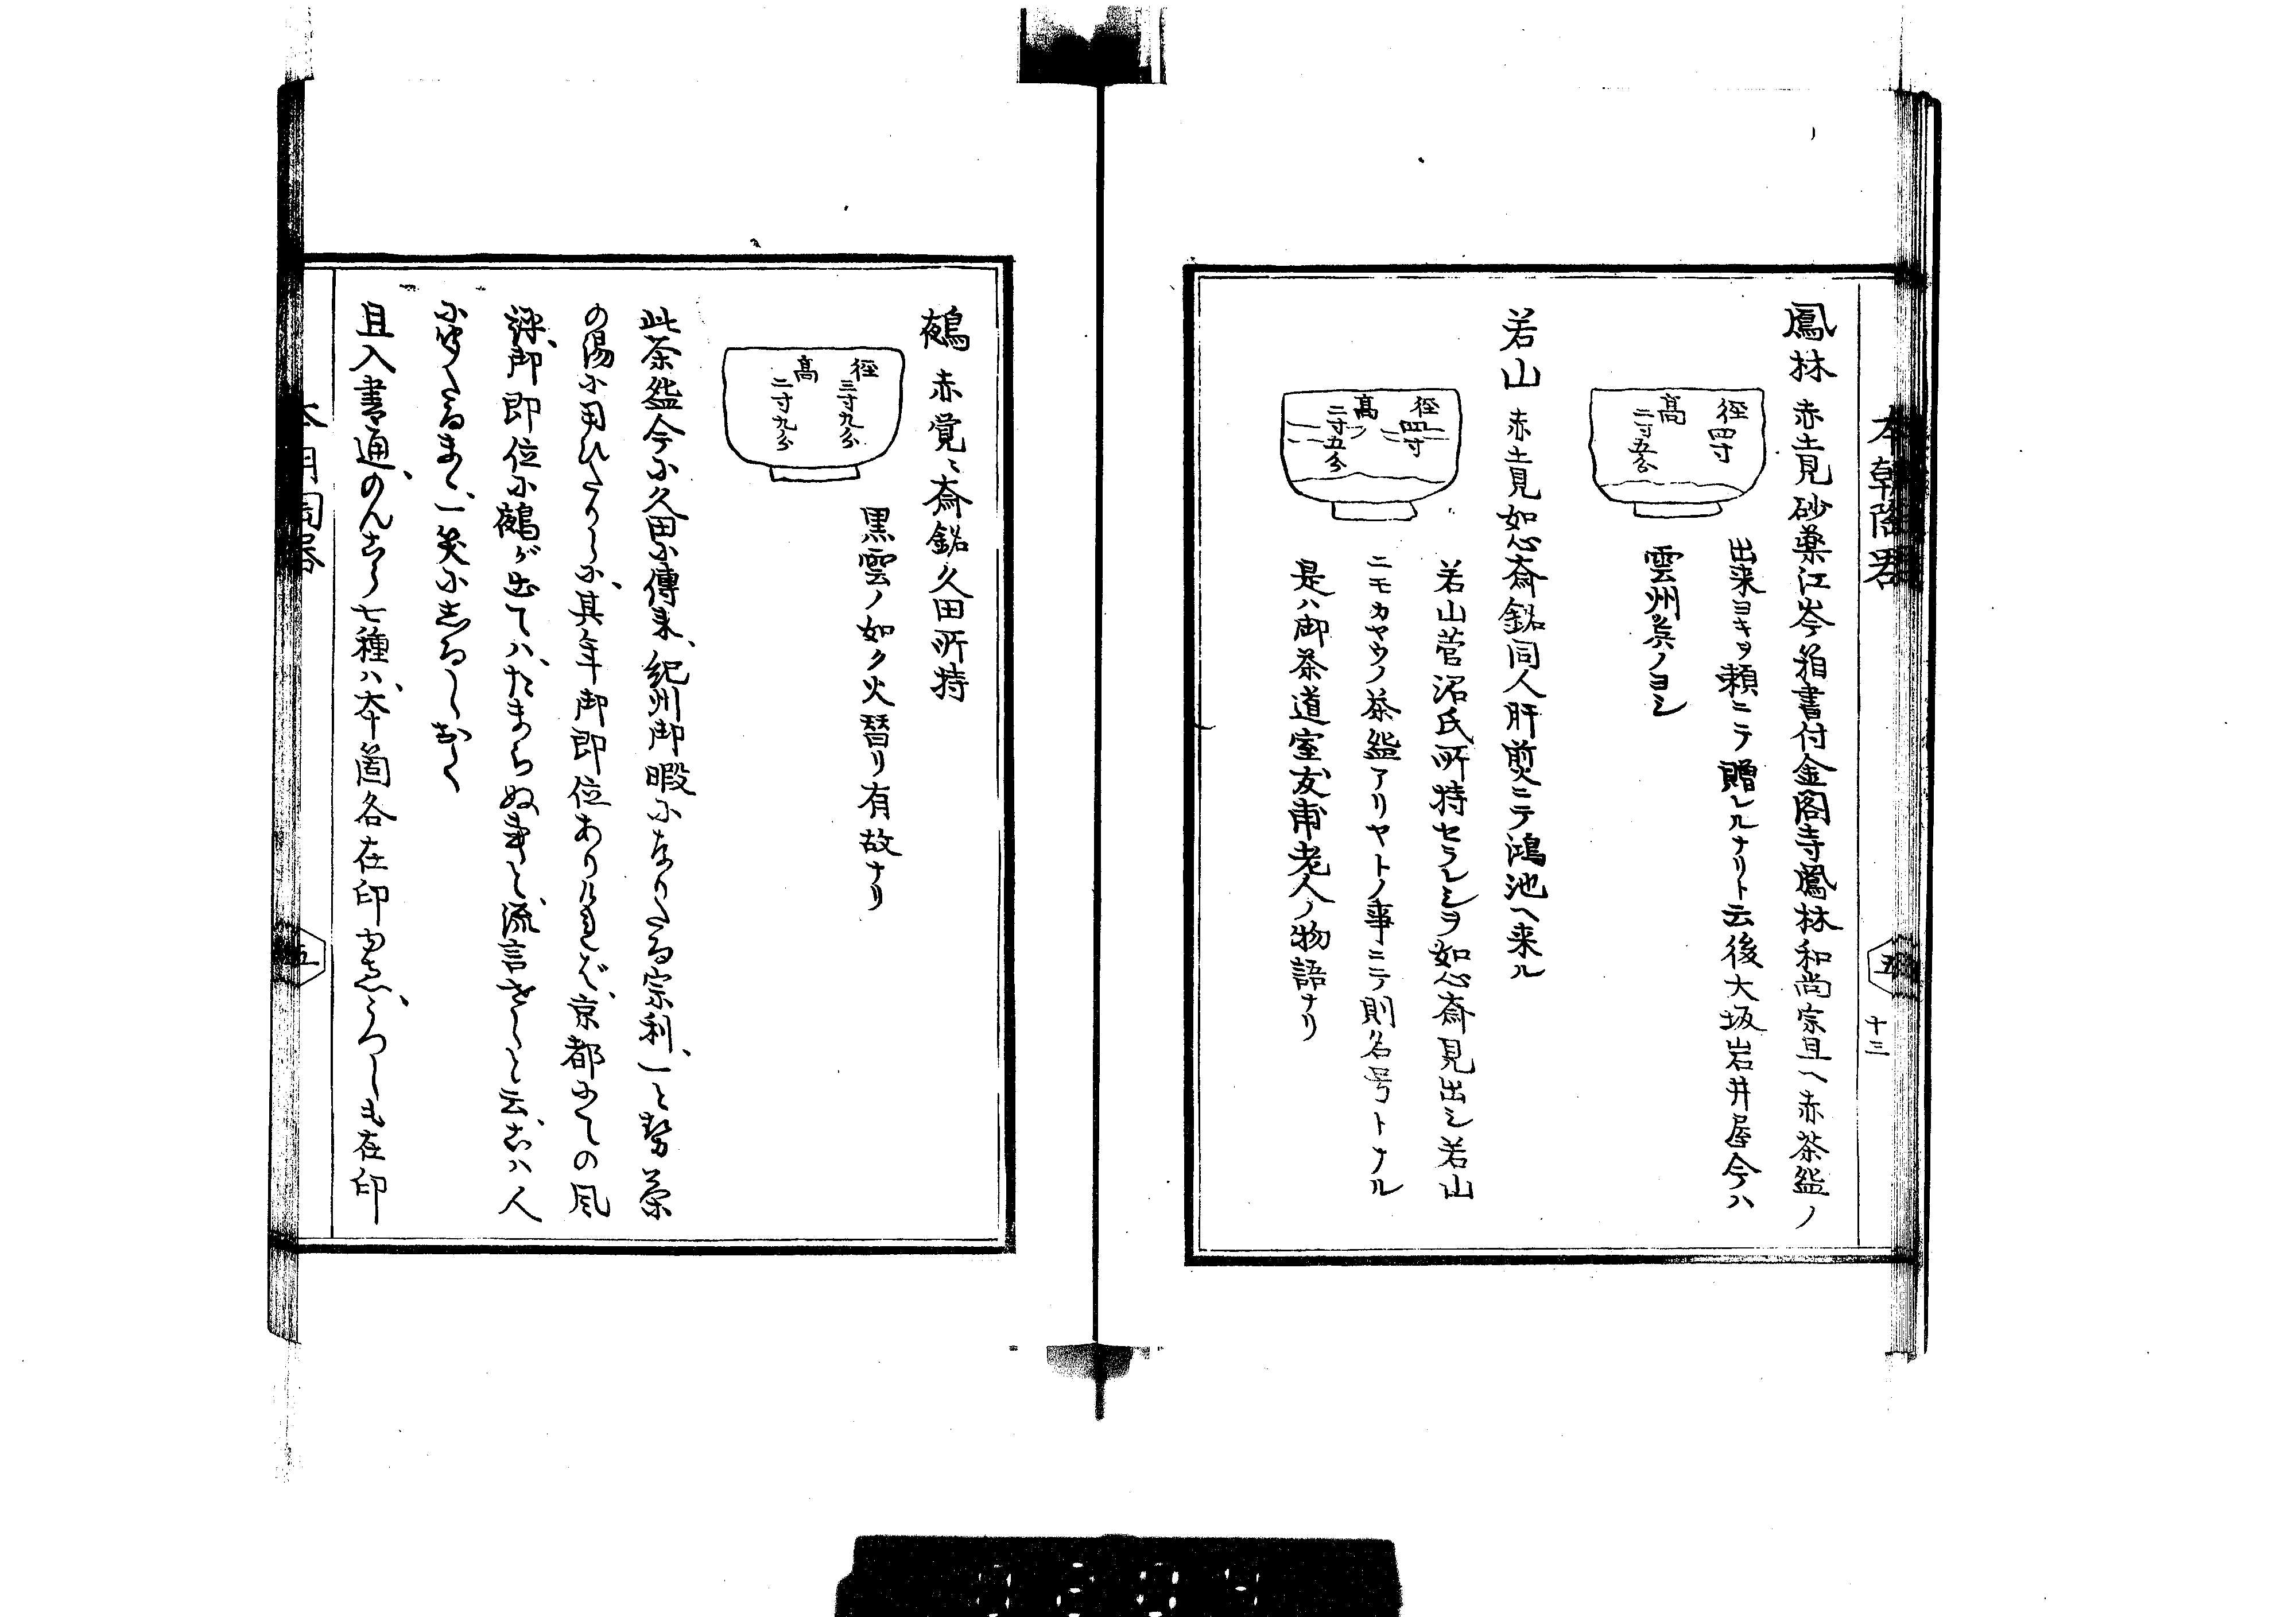 本朝陶器
五
十三
鳳林 赤土見砂薬江岑箱書付金閣寺鳳林和尚宗旦ヘ赤茶盌ノ
出来ヨキヲ頼ニテ贈レルナリト云後大坂岩井屋今ハ
雲州矦ノヨシ
径四寸
高二寸五分
若山 赤土見如心斎銘同人肝煎ニテ鴻池ヘ来ル
若山菅沼氏所持セラレシヲ如心斎見出シ若山
ニモカヤウノ茶盌アリヤトノ事ニテ則名号トナル
是ハ御茶道室友甫老人ノ物語ナリ
径四寸
高二寸五分
鵺 赤覚々斎銘久田所持
黒雲ノ如ク火替リ有故ナリ
径三寸九分
高二寸九分
此茶盌今小久田小傳来、紀州御暇になりたる宗利、一と勢茶
の湯に用ひたりしに、其年御即位ありけれバ、京都にての風
評、御即位に鵺が出てハ、たまらぬ事と、流言せしと云、こハ人
一笑にしるしおく
且入書通、のんこう七種ハ、本箇各在印
も在印
五